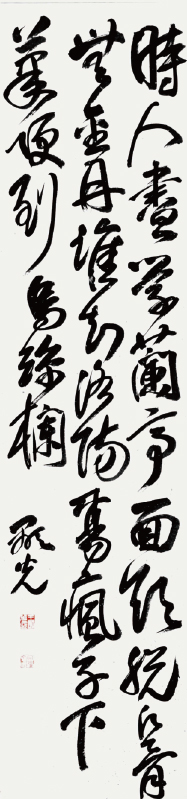 時人盡學蘭亭面欲脫凡骨
無金丹誰知洛陽楊瘋子下
筆便到烏絲欄